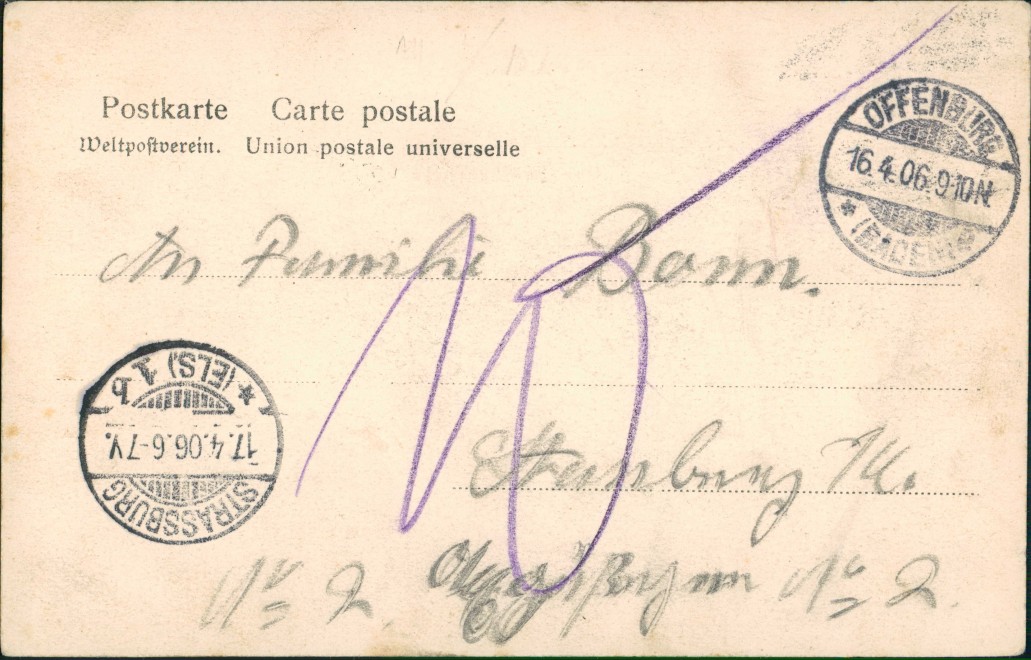 Postkarte Carte postale
Weltpostverein. Union postale universelle
OFFENBURG
16.4.06.9-10N.
*(BADEN)*
An Familie Bonn.
10
*(ELS). 1 b
17.4.06.6-7V.
STRASSBURG
No 2 No 2.